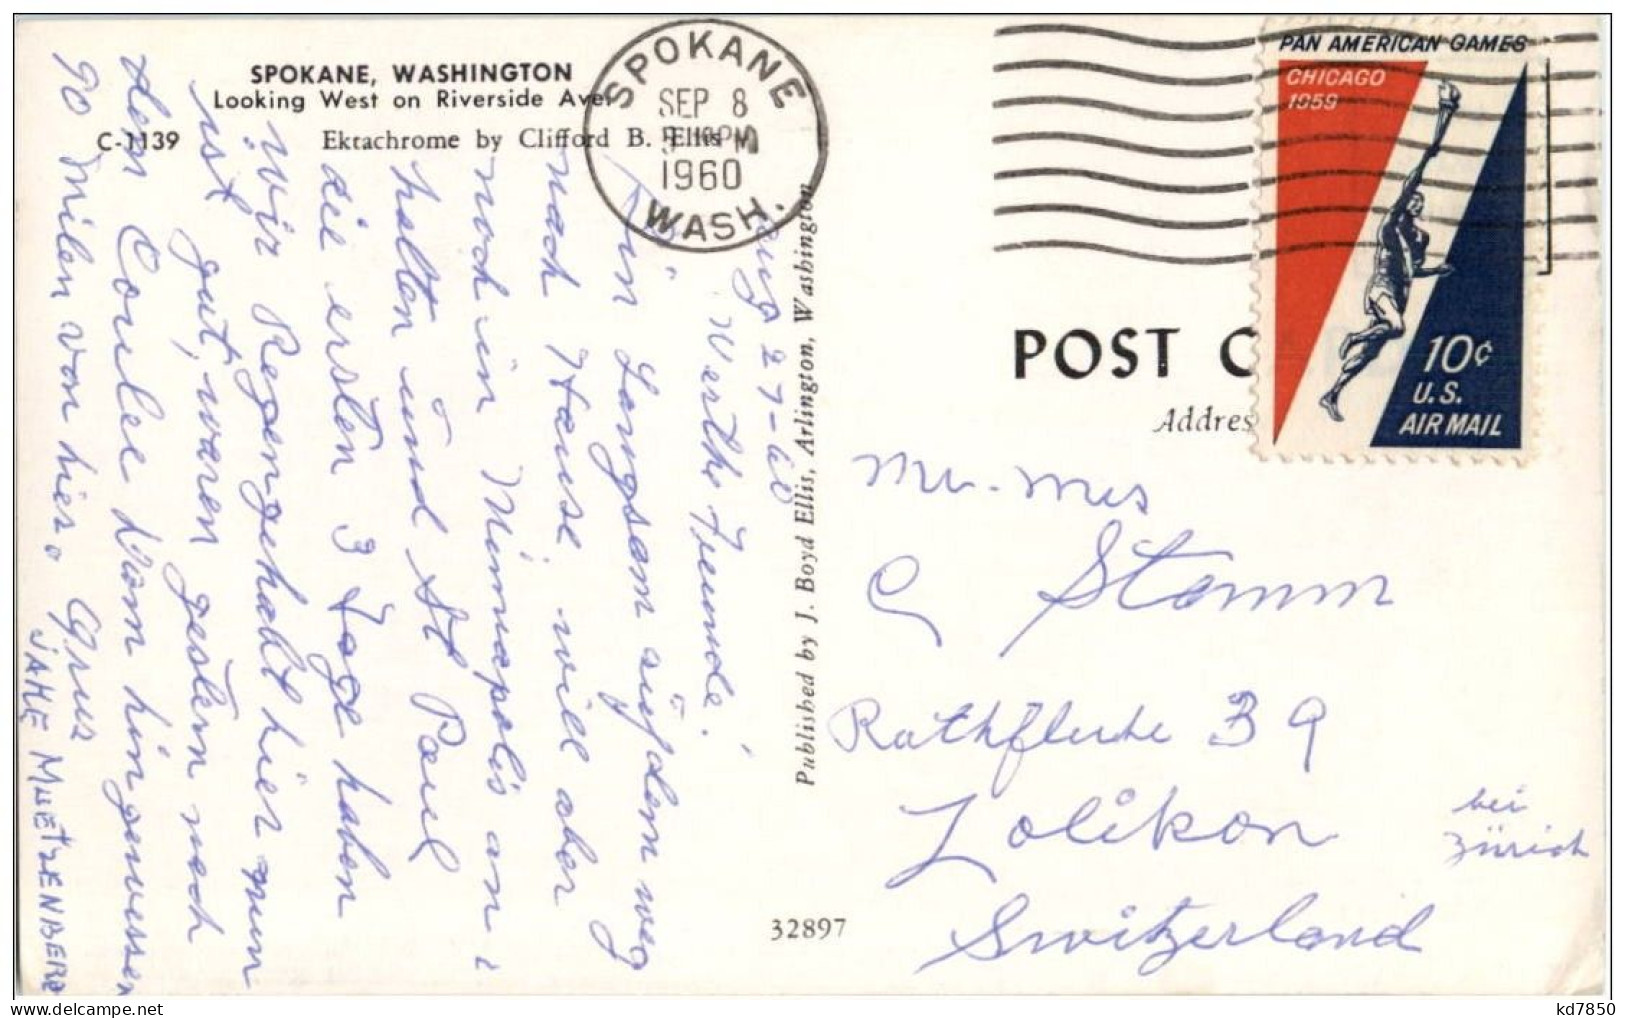 SPOKANE, WASHINGTON
Looking West on Riverside Ave.
C-1139 Ektachrome by Clifford B. Ellis
SPOKANE
SEP 8
PM
1960
WASH.
PAN AMERICAN GAMES
CHICAGO
1959
10¢
U.S.
AIR MAIL
POST C
Addres
Aug 27-60
Werthe Freunde!
Bin Langsam auf dem weg
nach Hause, will aber
noch in Minneapolis an
halten und St Paul
die ersten 3 Tage haben
wir Regen gehabt hier nun
ist gut, waren gestern noch
dem Coulee Dam hin gewesen
90 Milen von hier. Grus
JAKE MUETZENBERG
Published by J. Boyd Ellis, Arlington, Washington
32897
Mr. Mrs
C Stamm
39
Zolikon
bei
Zürich
Switzerland
kd7850